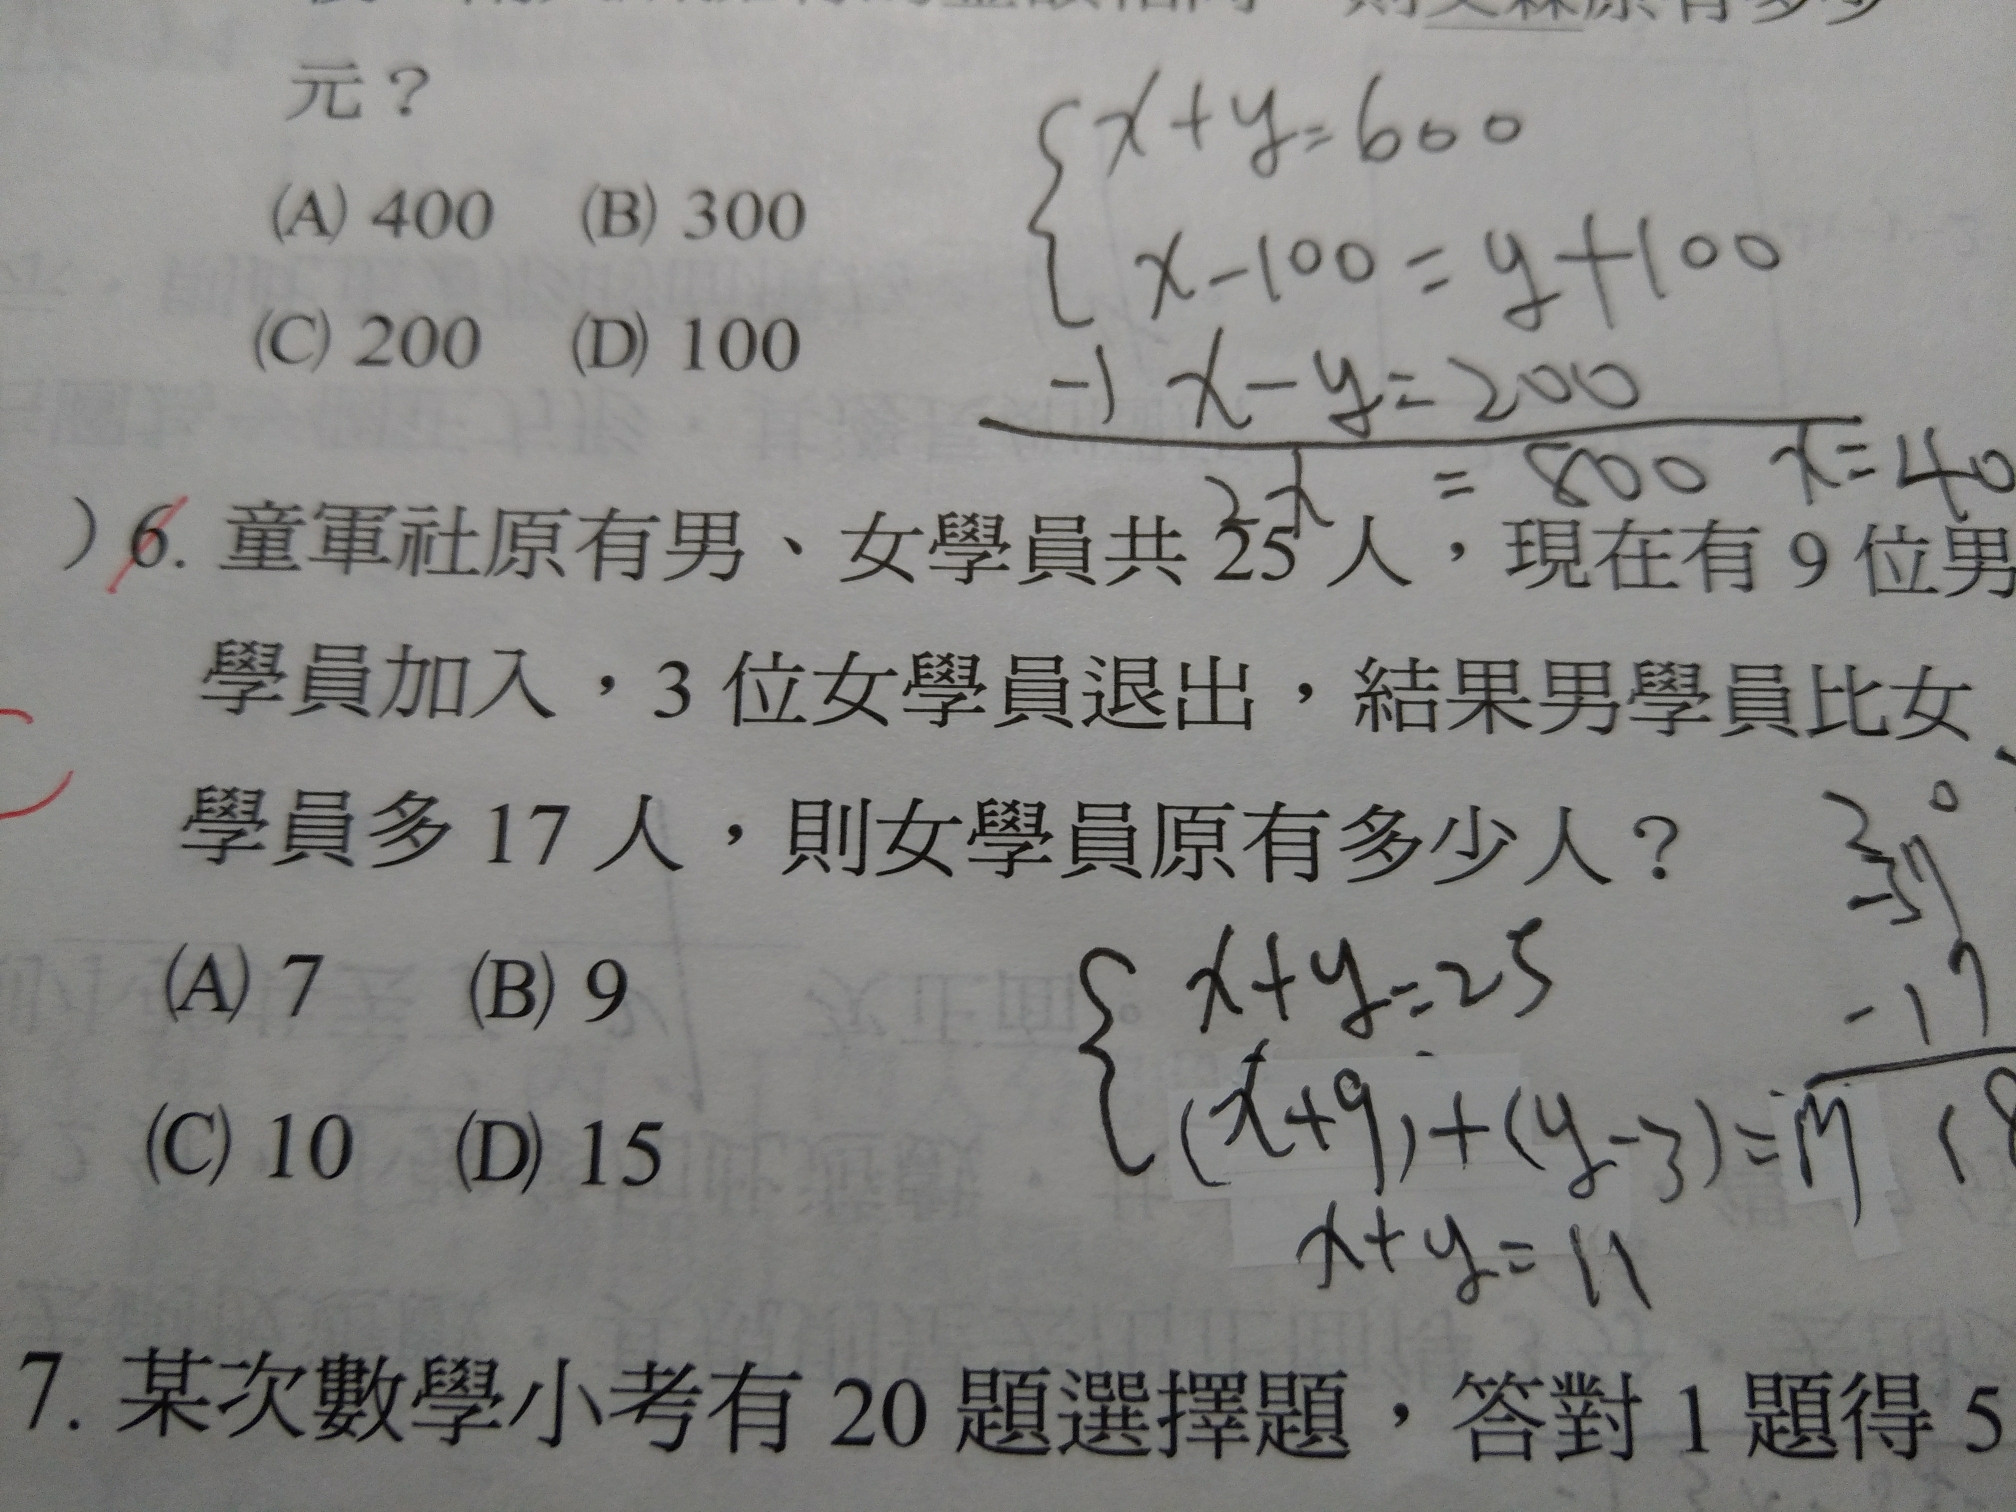 則艾森原有多少
元？
(A) 400 (B) 300
(C) 200 (D) 100
x+y=600
x-100=y+100
-) x-y=200
2x = 800 x=40
)6. 童軍社原有男、女學員共 25 人，現在有 9 位男
學員加入，3 位女學員退出，結果男學員比女
學員多 17 人，則女學員原有多少人？
(A) 7 (B) 9
(C) 10 (D) 15
x+y=25
(x+9)+(y-3)=17
x+y=11
-17
18
7. 某次數學小考有 20 題選擇題，答對 1 題得 5